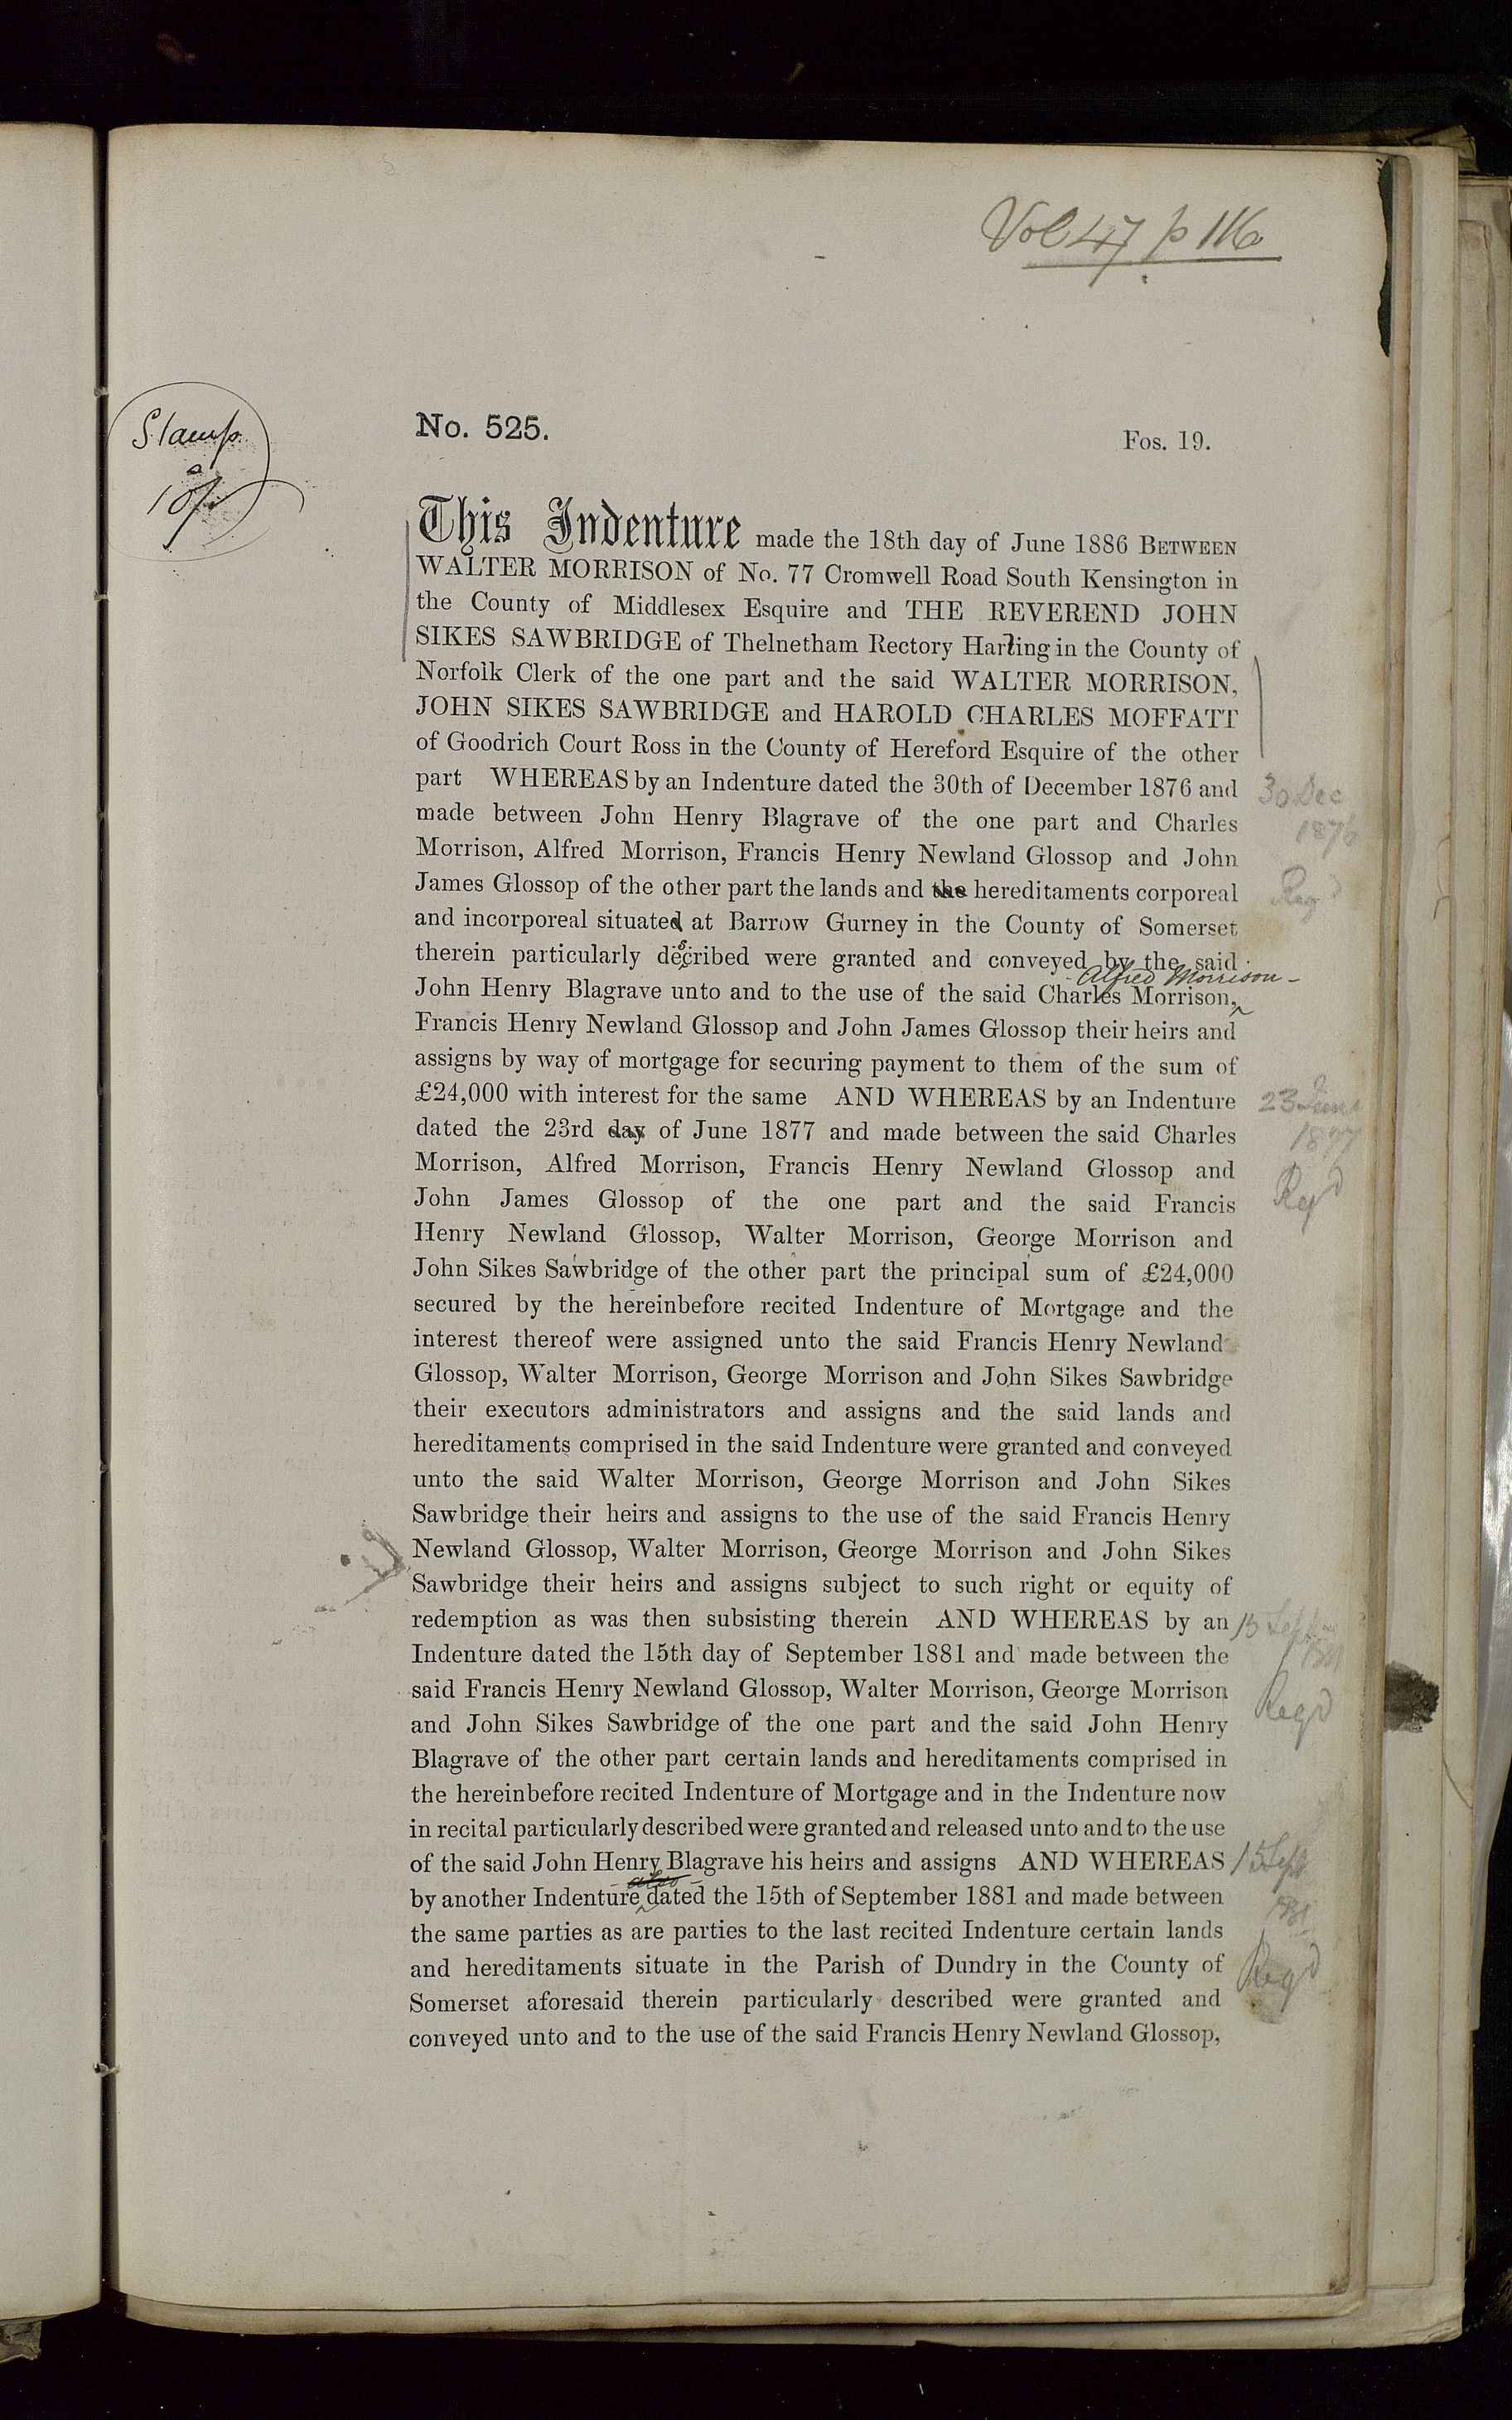 Vol 47 p 116
Stamp
10/-
No. 525.
Fos. 19.
This Indenture made the 18th day of June 1886 BETWEEN
WALTER MORRISON of No. 77 Cromwell Road South Kensington in
the County of Middlesex Esquire and THE REVEREND JOHN
SIKES SAWBRIDGE of Thelnetham Rectory Harling in the County of
Norfolk Clerk of the one part and the said WALTER MORRISON,
JOHN SIKES SAWBRIDGE and HAROLD CHARLES MOFFATT
of Goodrich Court Ross in the County of Hereford Esquire of the other
part WHEREAS by an Indenture dated the 30th of December 1876 and
30 Dec
1876
Regd
made between John Henry Blagrave of the one part and Charles
Morrison, Alfred Morrison, Francis Henry Newland Glossop and John
James Glossop of the other part the lands and the hereditaments corporeal
and incorporeal situated at Barrow Gurney in the County of Somerset
therein particularly described were granted and conveyed by the said
Alfred Morrison
John Henry Blagrave unto and to the use of the said Charles Morrison,
Francis Henry Newland Glossop and John James Glossop their heirs and
assigns by way of mortgage for securing payment to them of the sum of
£24,000 with interest for the same AND WHEREAS by an Indenture
23 June
1877
Regd
dated the 23rd day of June 1877 and made between the said Charles
Morrison, Alfred Morrison, Francis Henry Newland Glossop and
John James Glossop of the one part and the said Francis
Henry Newland Glossop, Walter Morrison, George Morrison and
John Sikes Sawbridge of the other part the principal sum of £24,000
secured by the hereinbefore recited Indenture of Mortgage and the
interest thereof were assigned unto the said Francis Henry Newland
Glossop, Walter Morrison, George Morrison and John Sikes Sawbridge
their executors administrators and assigns and the said lands and
hereditaments comprised in the said Indenture were granted and conveyed
unto the said Walter Morrison, George Morrison and John Sikes
Sawbridge their heirs and assigns to the use of the said Francis Henry
Newland Glossop, Walter Morrison, George Morrison and John Sikes
Sawbridge their heirs and assigns subject to such right or equity of
redemption as was then subsisting therein AND WHEREAS by an
15 Sept
1881
Regd
Indenture dated the 15th day of September 1881 and made between the
said Francis Henry Newland Glossop, Walter Morrison, George Morrison
and John Sikes Sawbridge of the one part and the said John Henry
Blagrave of the other part certain lands and hereditaments comprised in
the hereinbefore recited Indenture of Mortgage and in the Indenture now
in recital particularly described were granted and released unto and to the use
of the said John Henry Blagrave his heirs and assigns AND WHEREAS
15 Sept
1881
Regd
also
by another Indenture dated the 15th of September 1881 and made between
the same parties as are parties to the last recited Indenture certain lands
and hereditaments situate in the Parish of Dundry in the County of
Somerset aforesaid therein particularly described were granted and
conveyed unto and to the use of the said Francis Henry Newland Glossop,